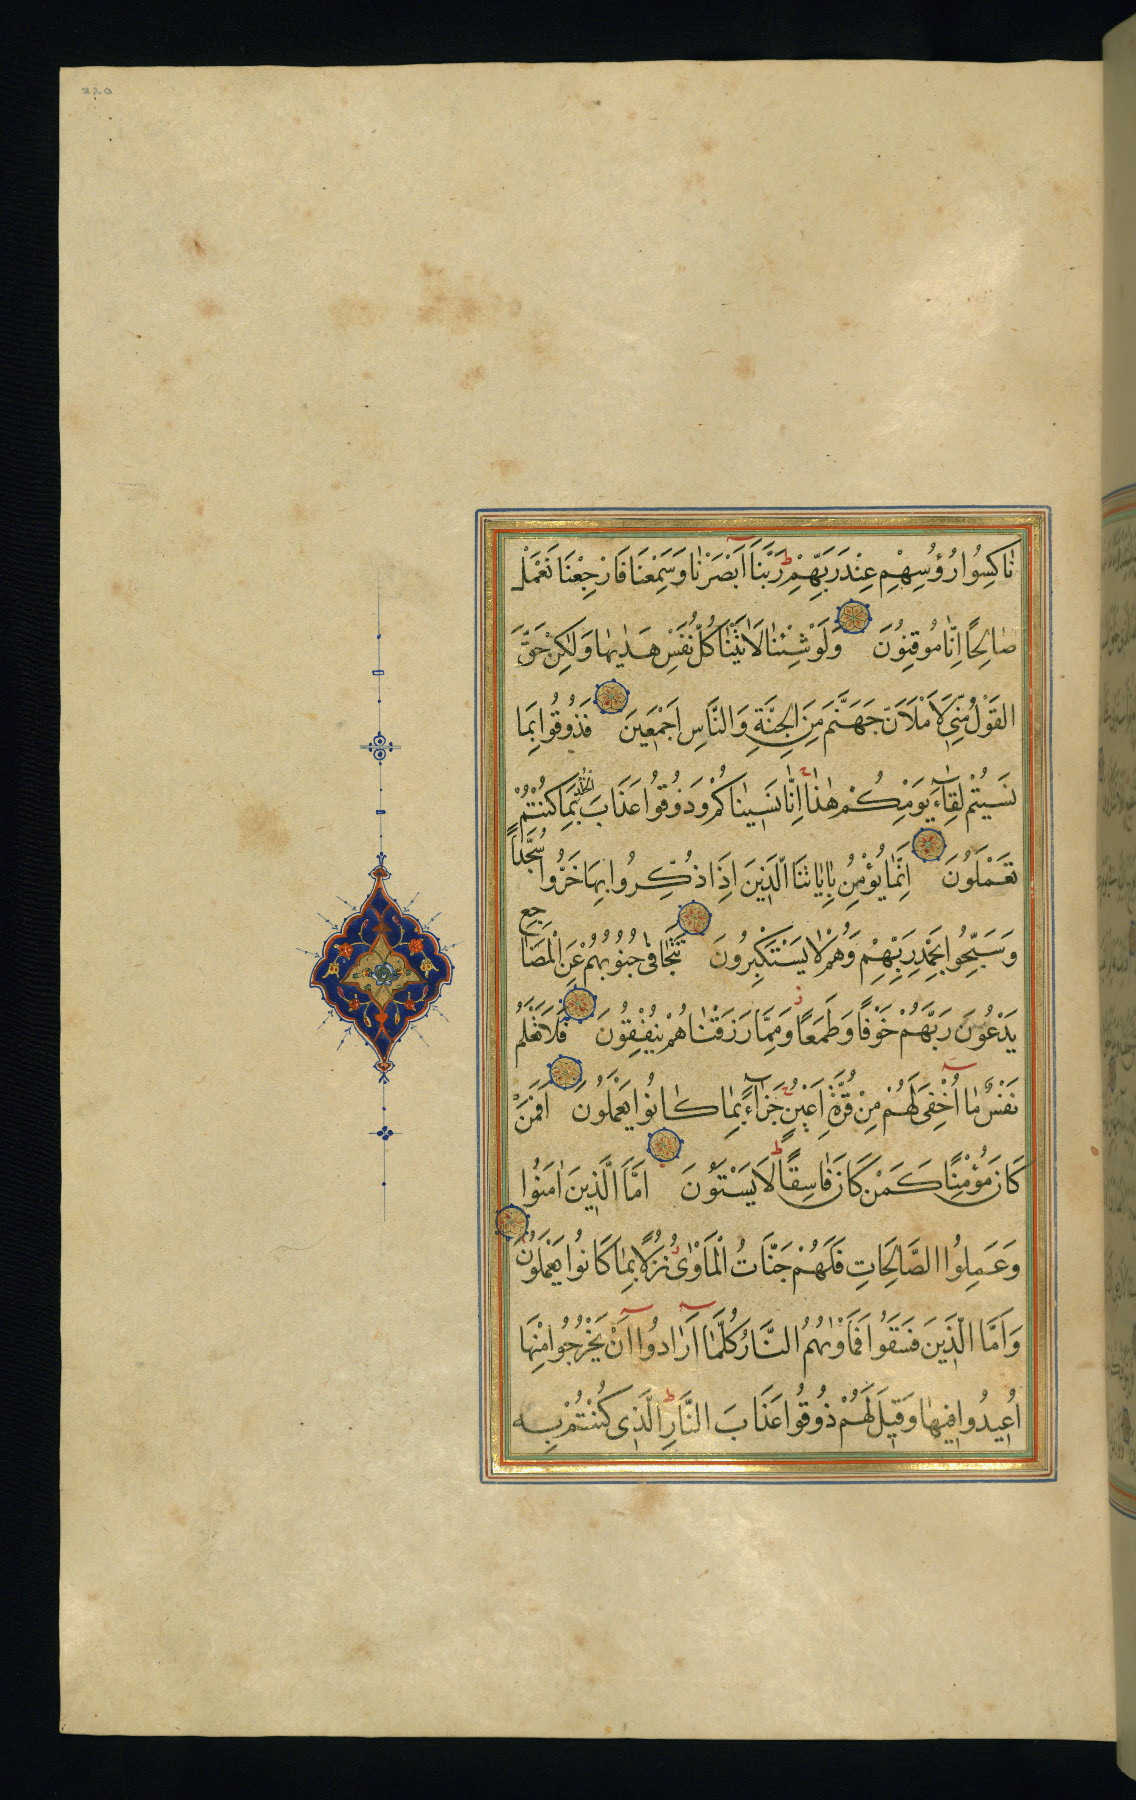 نَاكِسُوا رُؤُسِهِمْ عِنْدَ رَبِّهِمْ ط رَبَّنَا أَبْصَرْنَا وَسَمِعْنَا فَارْجِعْنَا نَعْمَلْ
صَالِحًا اِنَّا مُوقِنُونَ وَلَوْ شِئْنَا لَاٰتَيْنَا كُلَّ نَفْسٍ هَدٰيهَا وَلٰكِنْ حَقَّ
القَوْلُ مِنِّي لَاَمْلَاَنَّ جَهَنَّمَ مِنَ الجِنَّةِ وَالنَّاسِ اَجْمَعِينَ فَذُوقُوا بِمَا
نَسِيتُمْ لِقَاءَ يَوْمِكُمْ هٰذَا ج اِنَّا نَسِينَاكُمْ وَذُوقُوا عَذَابَ الْخُلْدِ بِمَا كُنْتُمْ
تَعْمَلُونَ اِنَّمَا يُؤْمِنُ بِاٰيَاتِنَا الَّذِينَ اِذَا ذُكِّرُوا بِهَا خَرُّوا سُجَّدًا
وَسَبَّحُوا بِحَمْدِ رَبِّهِمْ وَهُمْ لَا يَسْتَكْبِرُونَ تَتَجَافٰى جُنُوبُهُمْ عَنِ الْمَضَاجِعِ
يَدْعُونَ رَبَّهُمْ خَوْفًا وَطَمَعًا ز وَمِمَّا رَزَقْنَاهُمْ يُنْفِقُونَ فَلَا تَعْلَمُ
نَفْسٌ مَا اُخْفِىَ لَهُمْ مِنْ قُرَّةِ اَعْيُنٍ ج جَزَاءً بِمَا كَانُوا يَعْمَلُونَ اَفَمَنْ
كَانَ مُؤْمِنًا كَمَنْ كَانَ فَاسِقًا ط لَا يَسْتَوُنَ اَمَّا الَّذِينَ اٰمَنُوا
وَعَمِلُوا الصَّالِحَاتِ فَلَهُمْ جَنَّاتُ الْمَأْوٰى ز نُزُلًا بِمَا كَانُوا يَعْمَلُونَ
وَاَمَّا الَّذِينَ فَسَقُوا فَمَأْوٰيهُمُ النَّارُ كُلَّمَا اَرَادُوا اَنْ يَخْرُجُوا مِنْهَا
اُعِيدُوا فِيهَا وَقِيلَ لَهُمْ ذُوقُوا عَذَابَ النَّارِ الَّذِى كُنْتُمْ بِهِ